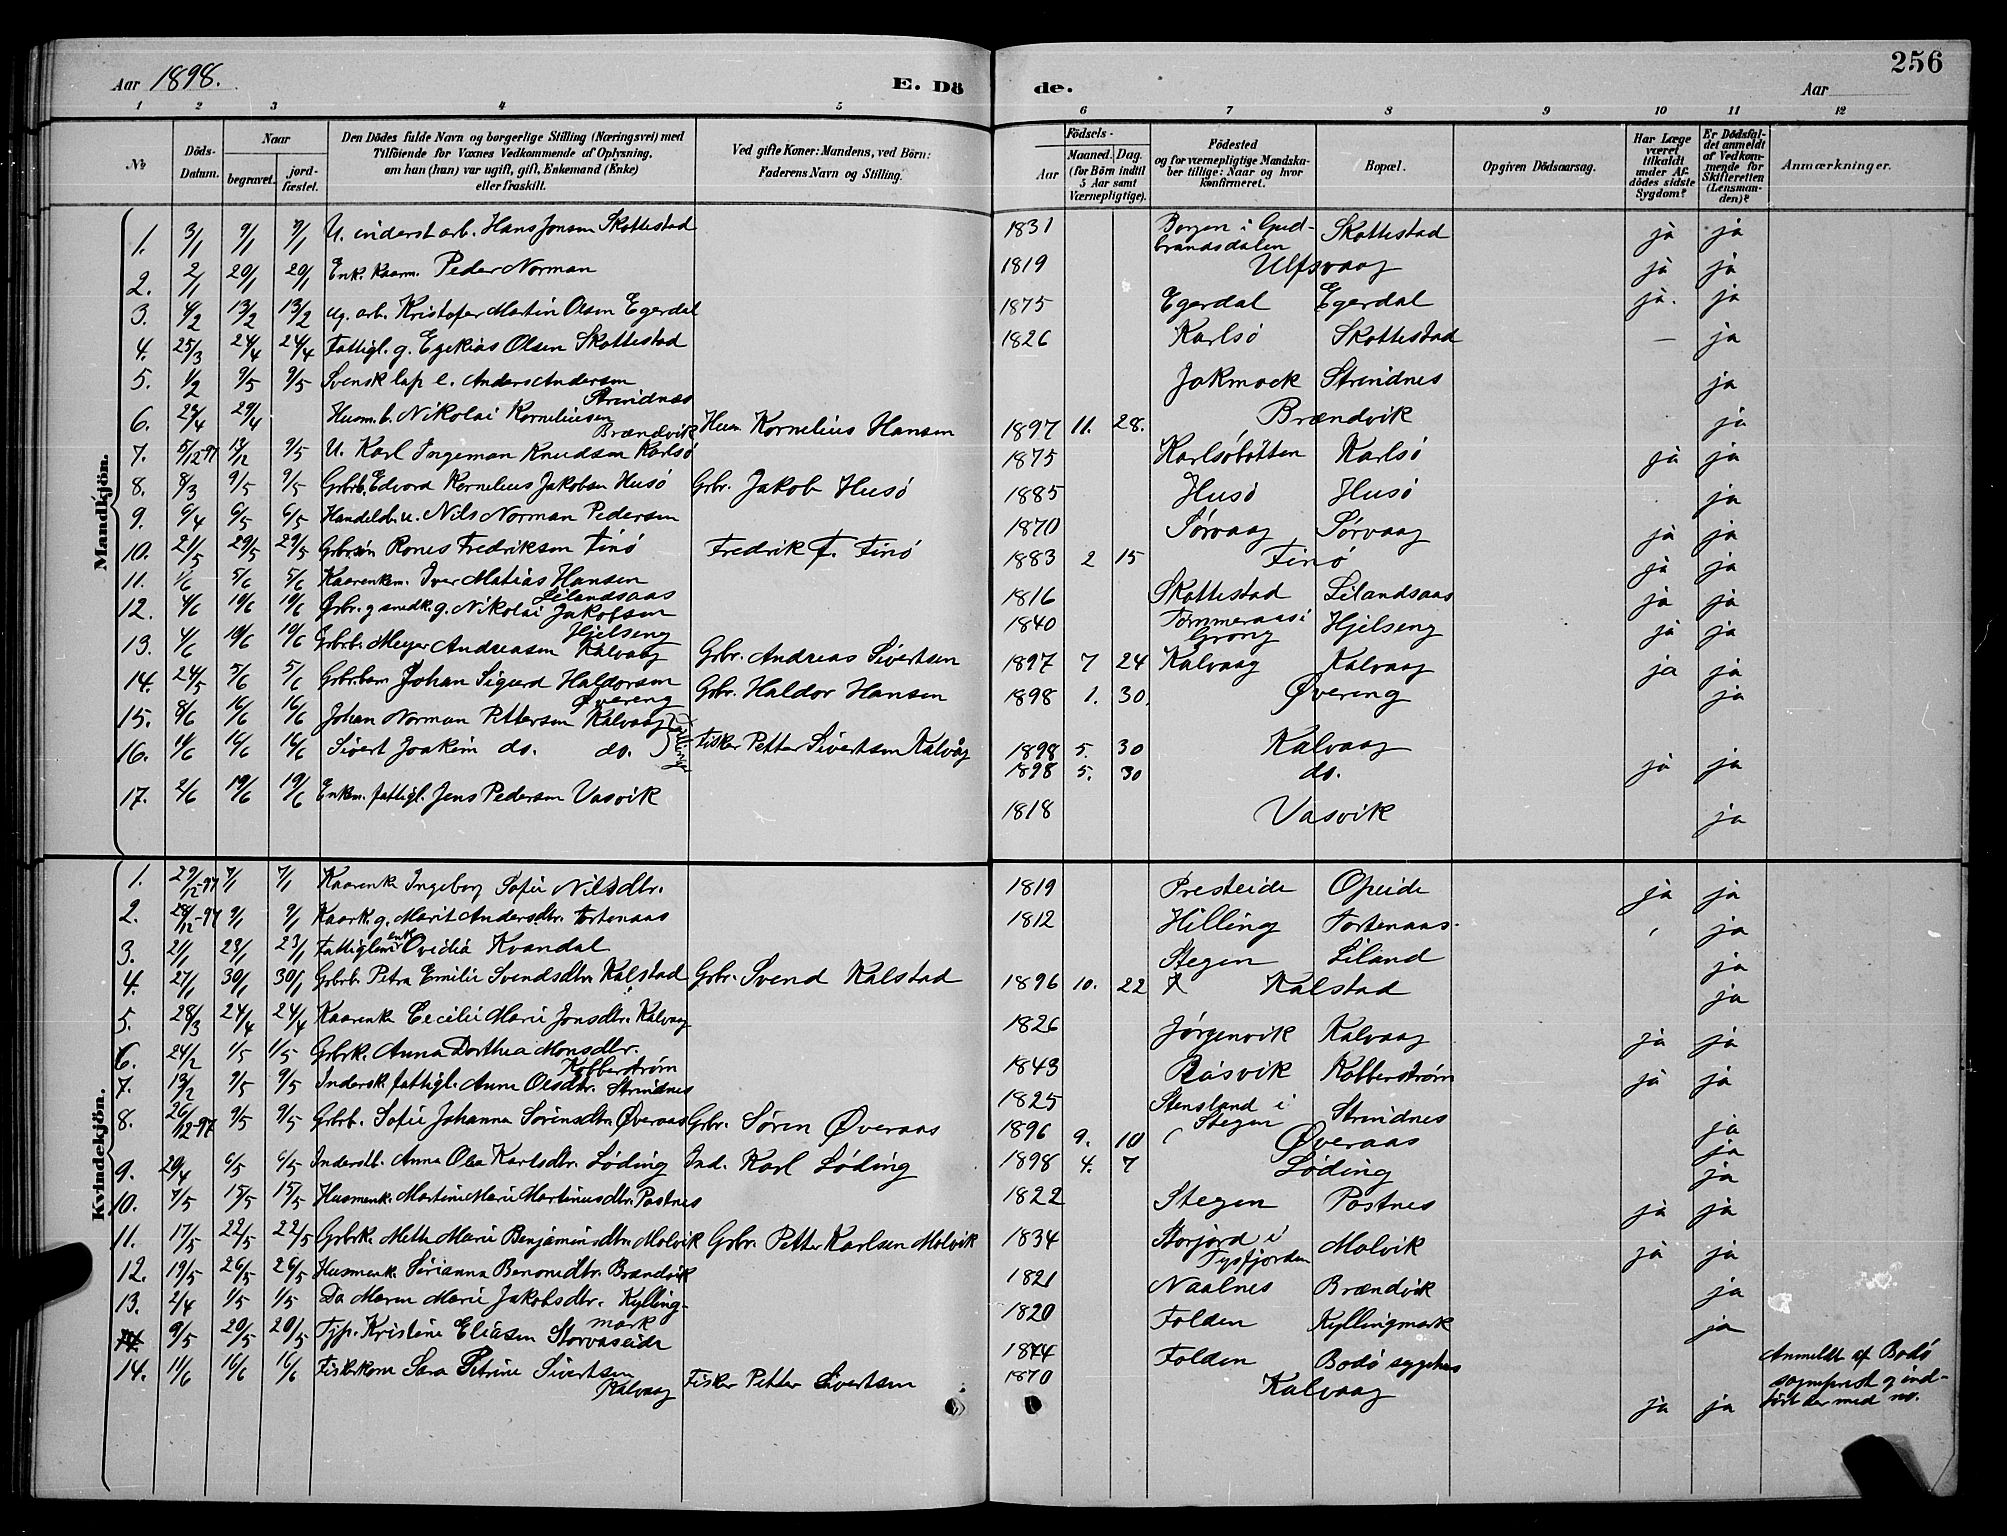 256
Aar 1898. E. Dö de. Aar
1 2 3 4 5 6 7 8 9 10 11 12
No
Döds-Datum.
Naar
begravet.
jordfæstet.
Den Dödes fulde Navn og borgerlige Stilling (Næringsvei) med
Tilföiende for Voxnes Vedkommende af Oplysning,
om han (hun) var ugift, gift, Enkemand (Enke)
eller fraskilt.
Ved gifte Koner: Mandens, ved Börn:
Faderens Navn og Stilling.
Födsels-
Aar
Maaned. Dag.
(for Börn indtil
5 Aar samt
Værnepligtige).
Födested
og for værnepligtige Mandska-
ber tillige: Naar og hvor
konfirmeret.
Bopæl.
Opgiven Dödsaarsag.
Har Læge
været
tilkaldt
under Af-
dödes sidste
Sygdom?
Er Dödsfal-
det anmeldt
af Vedkom-
mende for
Skifteretten
(Lensman-
den)?
Anmærkninger.
Mandkjön.
1. 3/1 9/1 9/1 U. inderst arb. Hans Jonsen Skottestad 1831 Borgen i Gud-brandsdalen Skottestad ja ja
2. 2/1 20/1 20/1 Enk. kaarm. Peder Norman 1819 Ulfsvaag ja ja
3. 4/2 13/2 13/2 ug. arb. Kristofer Martin Olsen Egerdal 1875 Egerdal Egerdal ja. ja
4. 25/3 24/4 24/4 Fattigl. g. Ezekias Olsen Skottestad 1826 Karlsö Skottestad — ja
5. 1/2 9/5 9/5 Svensk lap e. Anders Andersen Strindnes Jokmock Strindnes ja
6. 24/4 29/4 Husm.b. Nikolai Korneliussen Brændvik Husm. Kornelius Hansen 1897 11. 28. Brændvik ja
7. 5/12 97 12/12 9/5 U. Karl Ingeman Knudsen Karlsö 1875 Karlsöbotten Karlsö ja ja
8. 8/3 9/5 9/5 Grbrb. Edvard Kornelius Jakobsen Husö Grbr. Jakob Husö 1885 Husö Husö ja
9. 6/4 6/5 6/5 Handelsb. u. Nils Norman Pedersen 1870 Sørvaag Sørvaag ja ja
10. 21/5 29/5 29/5 Grbrsøn Rones Fredriksen Finö Fredrik F. Finö 1883 2 15 Finö ja ja
11. 1/6 5/6 5/6 Kaarenkem. Iver Matias Hansen Lilandsaas 1816 Skottestad Lilandsaas ja ja
12. 4/6 19/6 19/6 Grbr. g smedk. g. Nikolai Jakobsen Hjelseng 1840 Tømmeraas i Grong Hjelseng ja ja
13. 4/6 19/6 19/6 Grbrb. Meyer Andreasen Kalvaag Grbr. Andreas Sivertsen 1897 7 24 Kalvaag Kalvaag ja ja
14. 24/5 5/6 5/6 Grbrbarn Johan Sigurd Haldorsen Øvereng Grbr. Haldor Hansen 1898 1. 30. Øvereng ja
15. 8/6 16/6 16/6 Johan Norman Pettersen Kalvaag
16. 11/6 16/6 16/6 Sivert Joakim do. do. Tvillinger Fisker Petter Sivertsen Kalvåg 1898 5. 30 Kalvaag
1898 5. 30 do. ja ja
17. 2/6 19/6 19/6 Enkem. fattigl. Jens Pedersen Vasvik 1818 Vasvik ja
Kvindekjön.
1. 29/12-97 7/1 7/1 Kaarenk Ingeborg Sofie Nilsdtr. 1819 Presteide Opeide ja ja
2. 28/12-97 9/1 9/1 Kaark. g. Marit Andersdtr. Tortenaas 1812 Hilling Tortenaas. ja
3. 21/1 23/1 23/1 Fattiglem enk Ovidia Kvandal Stegen Liland ja
4. 27/1 30/1 30/1 Grbrb. Petra Emilie Svendsdtr. Kalstad Grbr. Svend Kalstad 1896 10. 22 Kalstad ja
5. 28/3 24/4 24/4 Kaarenk Cecilie Marie Jonsdtr. Kalvaag 1826 Jørgenvik Kalvaag ja ja
6. 24/2 1/5 1/5 Grbrk. Anna Dorthea Monsdtr. Kobberstrøm 1843 Råsvik Kobberstrøm ja ja
7. 13/2 9/5 9/5 Indersk fattigl. Anne Olsdtr. Strindnes 1825 Stensland i Stegen Strindnes ja
8. 26/12-97 9/5 9/5 Grbrb. Sofie Johanna Sørensdtr. Øveraas Grbr. Søren Øveraas 1896 9. 10 Øveraas ja
9. 29/4 6/5 6/5 Inderstb. Anna Olea Karlsdtr. Løding Ind. Karl Løding 1898 4. 7 Løding ja
10. 7/5 15/5 15/5 Husmenk. Martine Marie Martinusdtr. Postnes 1822 Stegen Postnes ja ja
11. 17/5 22/5 22/5 Grbrk. Mette Marie Benjaminsdtr. Molvik Grbr. Petter Karlsen Molvik 1834 Storjord i Tysfjorden Molvik ja ja
12. 19/5 26/5 26/5 Husmenk. Sirianna Benonsdtr. Brændvik 1821 Naalnes Brændvik ja
13. 2/4 1/5 1/5 Do Maren Marie Jakobsdtr. Kyllingmark 1820 Folden Kyllingmark ja
14 9/5 20/5 20/5 Typ. Kristine Eliasen Storvaseide 1874 Folden Bodö sygehus Anmeldt af Bodö sogneprest og ind-ført der med no.
14. 11/6 16/6 16/6 Fiskerkone Sara Petrine Sivertsen Kalvaag Fisker Petter Sivertsen 1870 Kalvaag ja ja